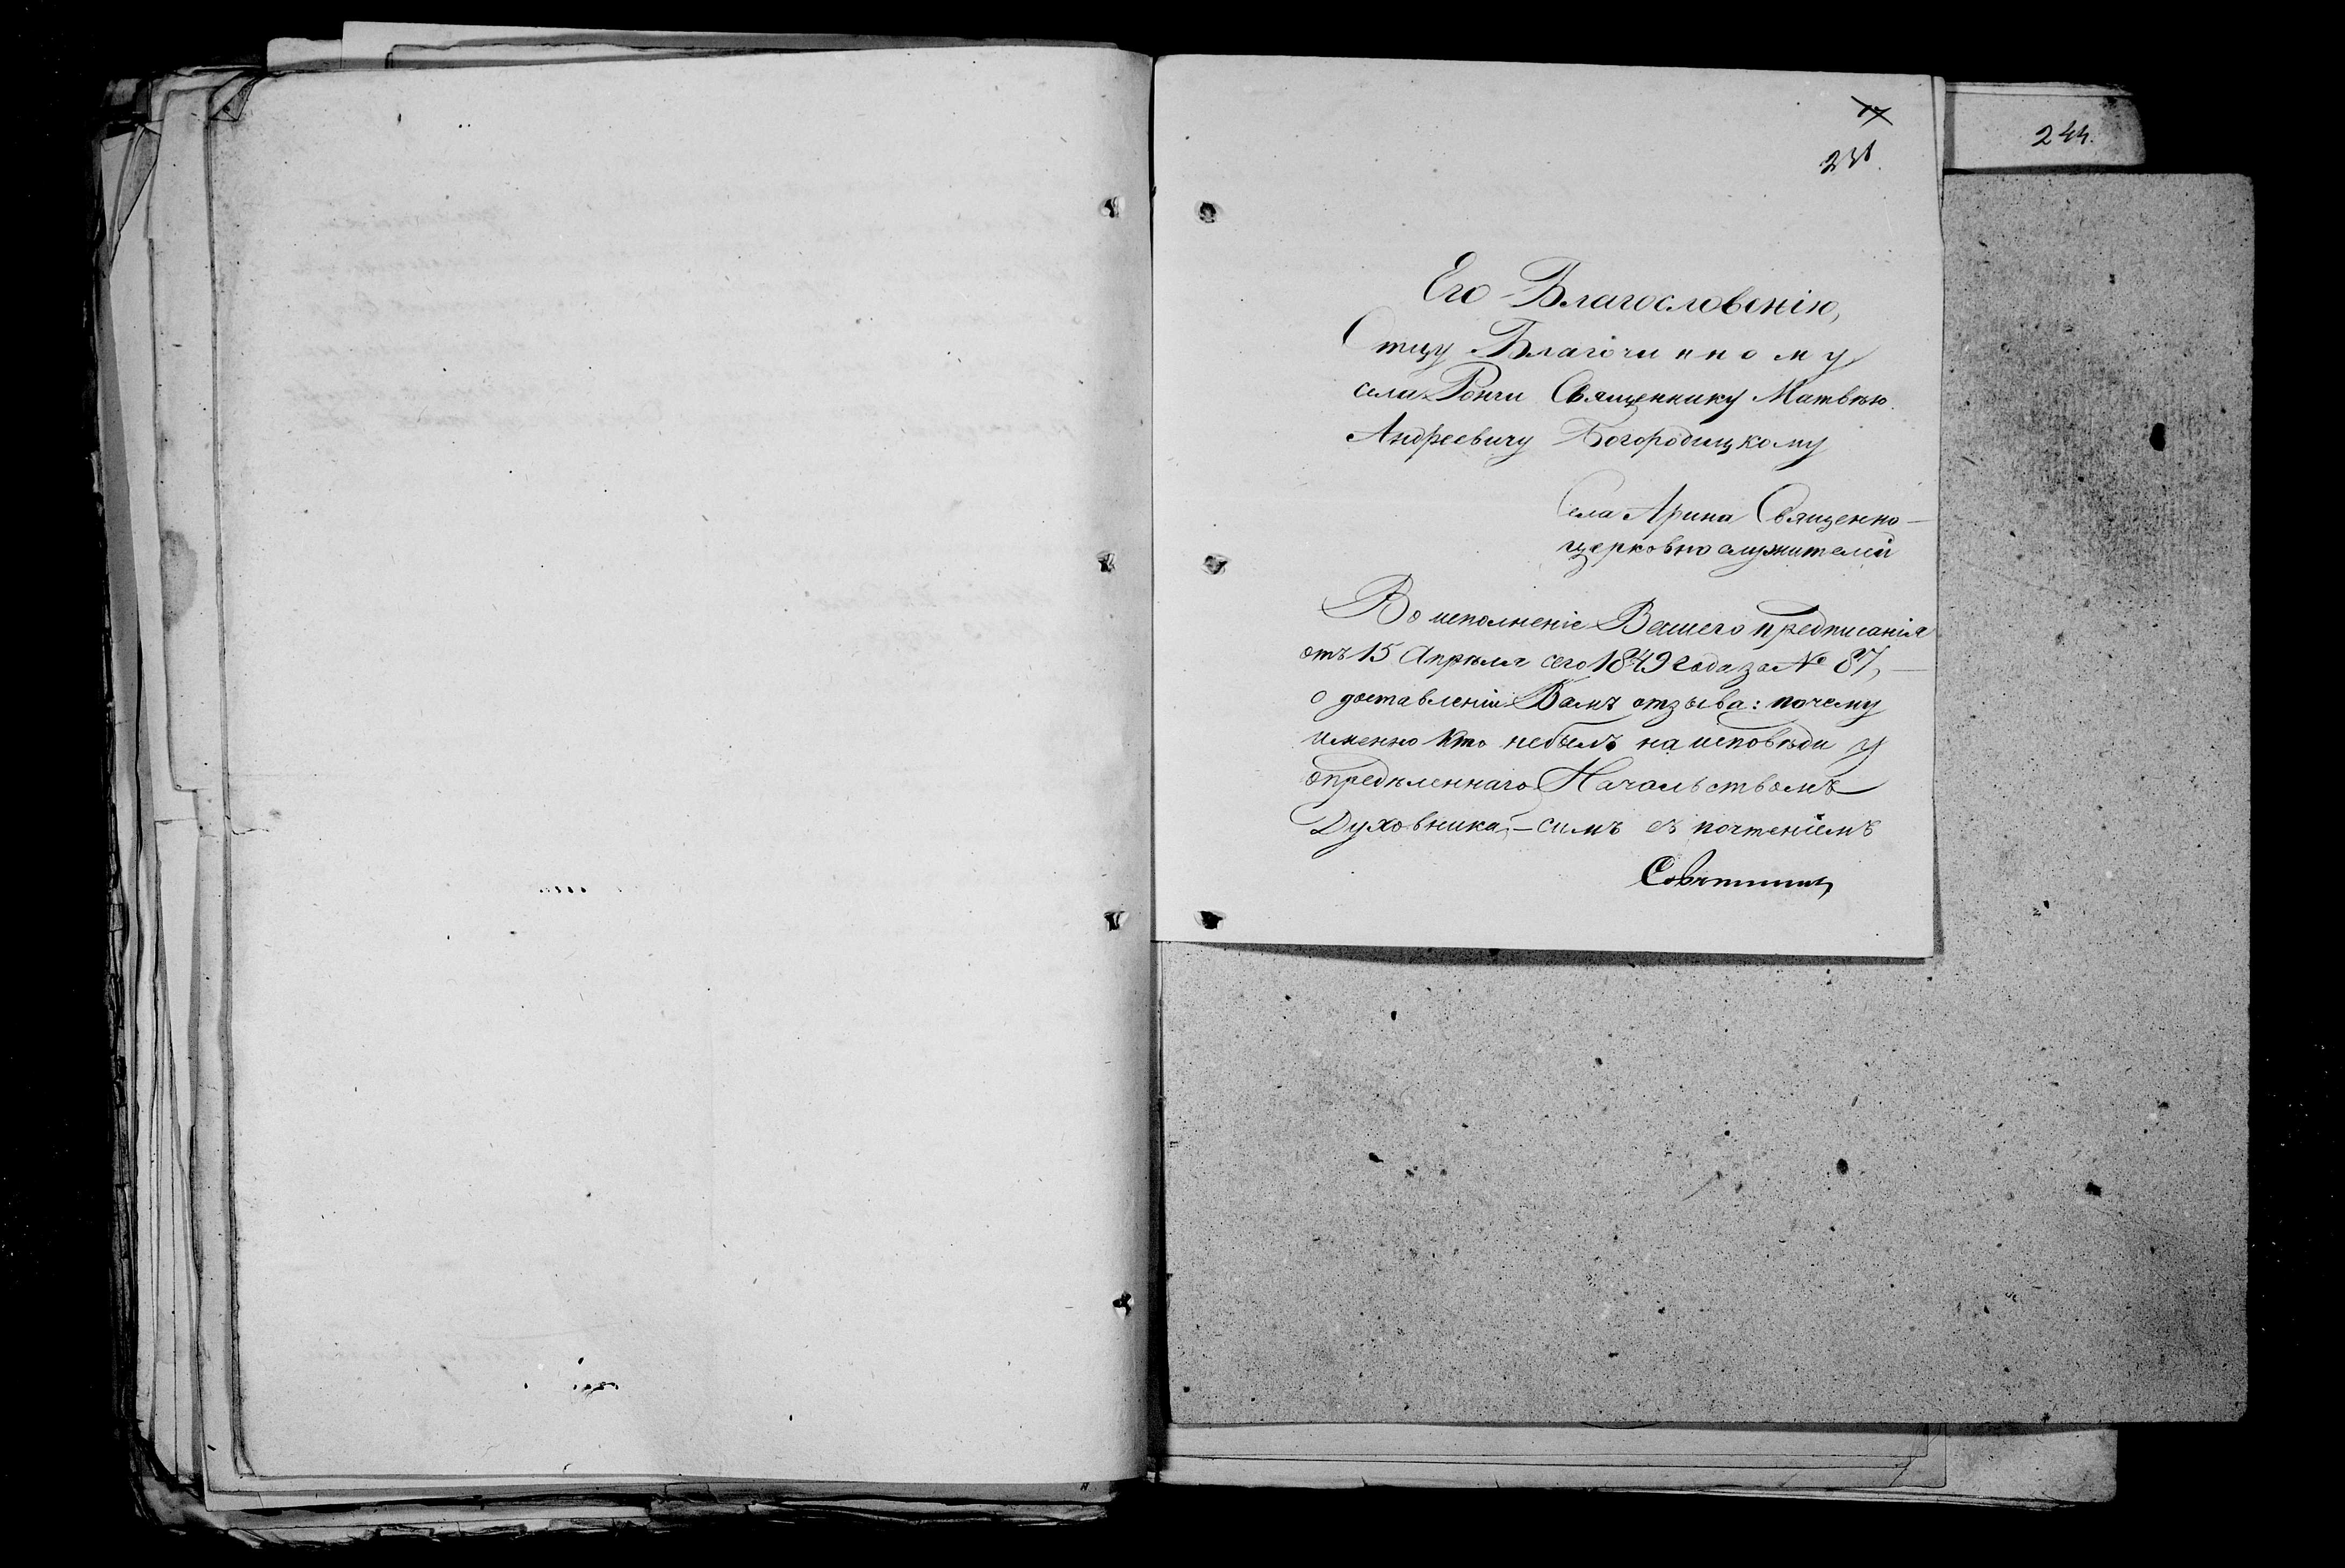 244.
Его Благословенію,
Отцу Благочинному
села Ронги Священнику Матвѣю
Андреевичу Богородицкому
Села Арина Священно-
церковнослужителей
Во исполненіе Вашего предписанія
отъ 15 Апрѣля сего 1849 года за № 87, —
о доставленіи Вамъ отзыва: почему
именно кто небылъ на исповѣди у
опредѣленнаго Начальствомъ
Духовника, — симъ съ почтеніемъ